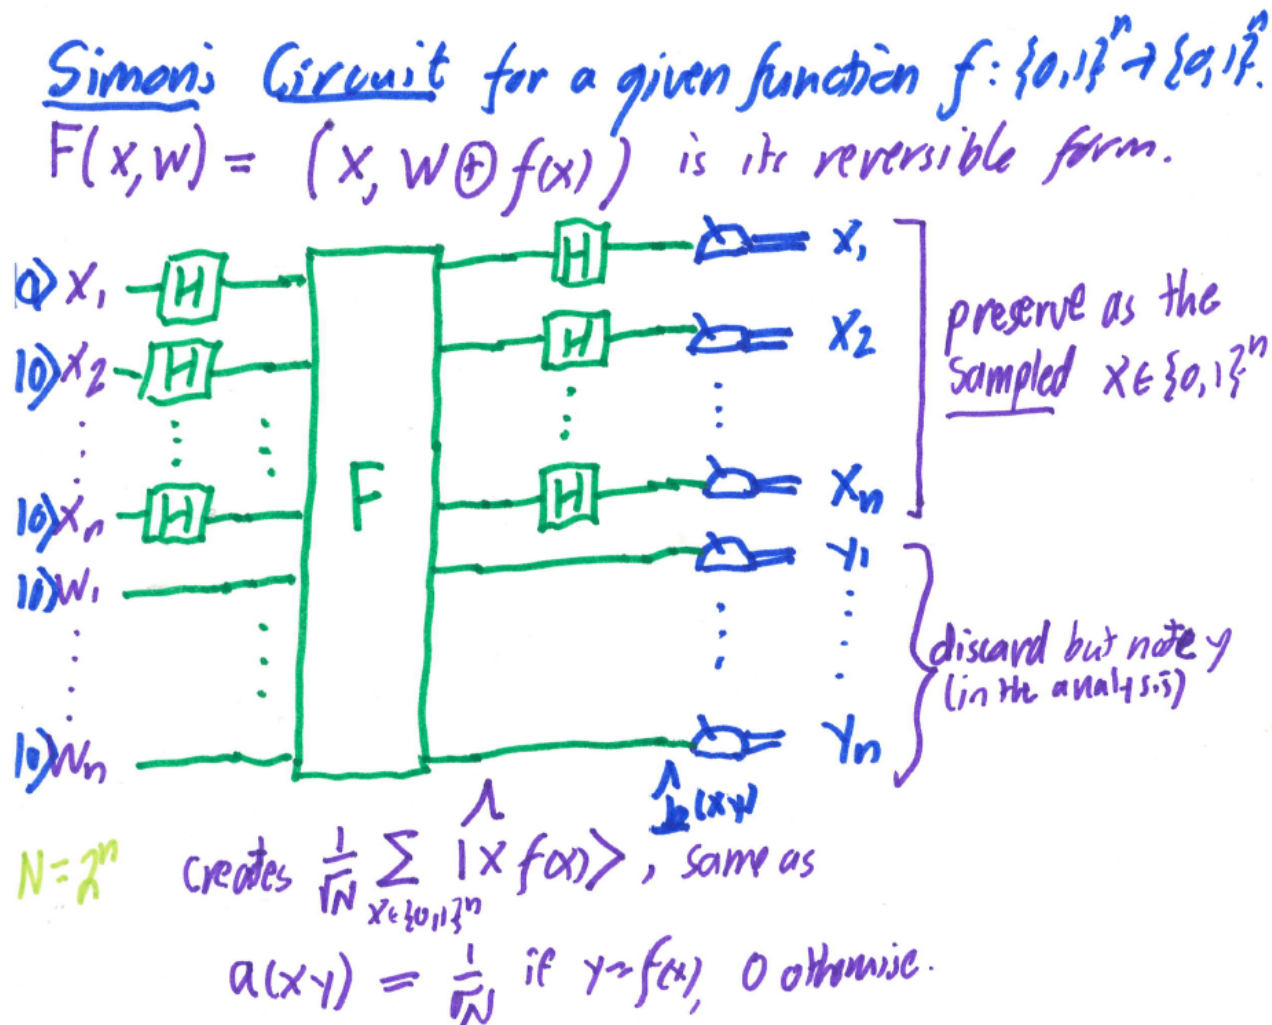 Simon's Circuit for a given function f: {0,1}ⁿ → {0,1}ⁿ.
F(x,w) = (x, w⊕f(x)) is its reversible form.
|0⟩ x₁ H H x₁
|0⟩ x₂ H H x₂
preserve as the
sampled x∈{0,1}ⁿ
F
|0⟩ xₙ H H xₙ
|0⟩ w₁ y₁
discard but note y
(in the analysis)
|0⟩ wₙ yₙ
b(xy)
N=2ⁿ creates 1/√N ∑ x∈{0,1}ⁿ |x f(x)⟩, same as
a(xy) = 1/√N if y=f(x), 0 otherwise.